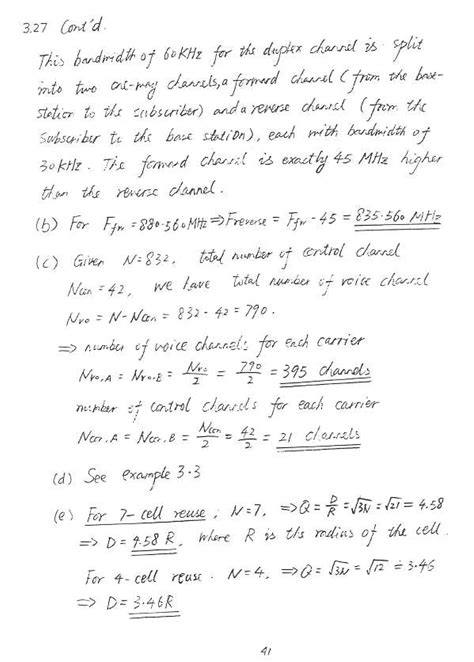 3.27 Cont'd.
This bandwidth of 60KHz for the duplex channel is split
into two one-way channels, a forward channel (from the base-
station to the subscriber) and a reverse channel (from the
subscriber to the base station), each with bandwidth of
30KHz. The forward channel is exactly 45 MHz higher
than the reverse channel.
(b) For Ffw = 880.560MHz ⇒ Freverse = Ffw - 45 = 835.560 MHz
(c) Given N=832, total number of control channel
Ncon = 42, we have total number of voice channel
Nvo = N - Ncon = 832 - 42 = 790.
⇒ number of voice channels for each carrier
Nvo,A = Nvo,B = Nvo/2 = 790/2 = 395 channels
number of control channels for each carrier
Ncon,A = Ncon,B = Ncon/2 = 42/2 = 21 channels
(d) See example 3.3
(e) For 7-cell reuse, N=7, ⇒ Q = D/R = √3N = √21 = 4.58
⇒ D = 4.58 R, where R is the radius of the cell.
For 4-cell reuse. N=4, ⇒ Q = √3N = √12 = 3.46
⇒ D = 3.46R
41